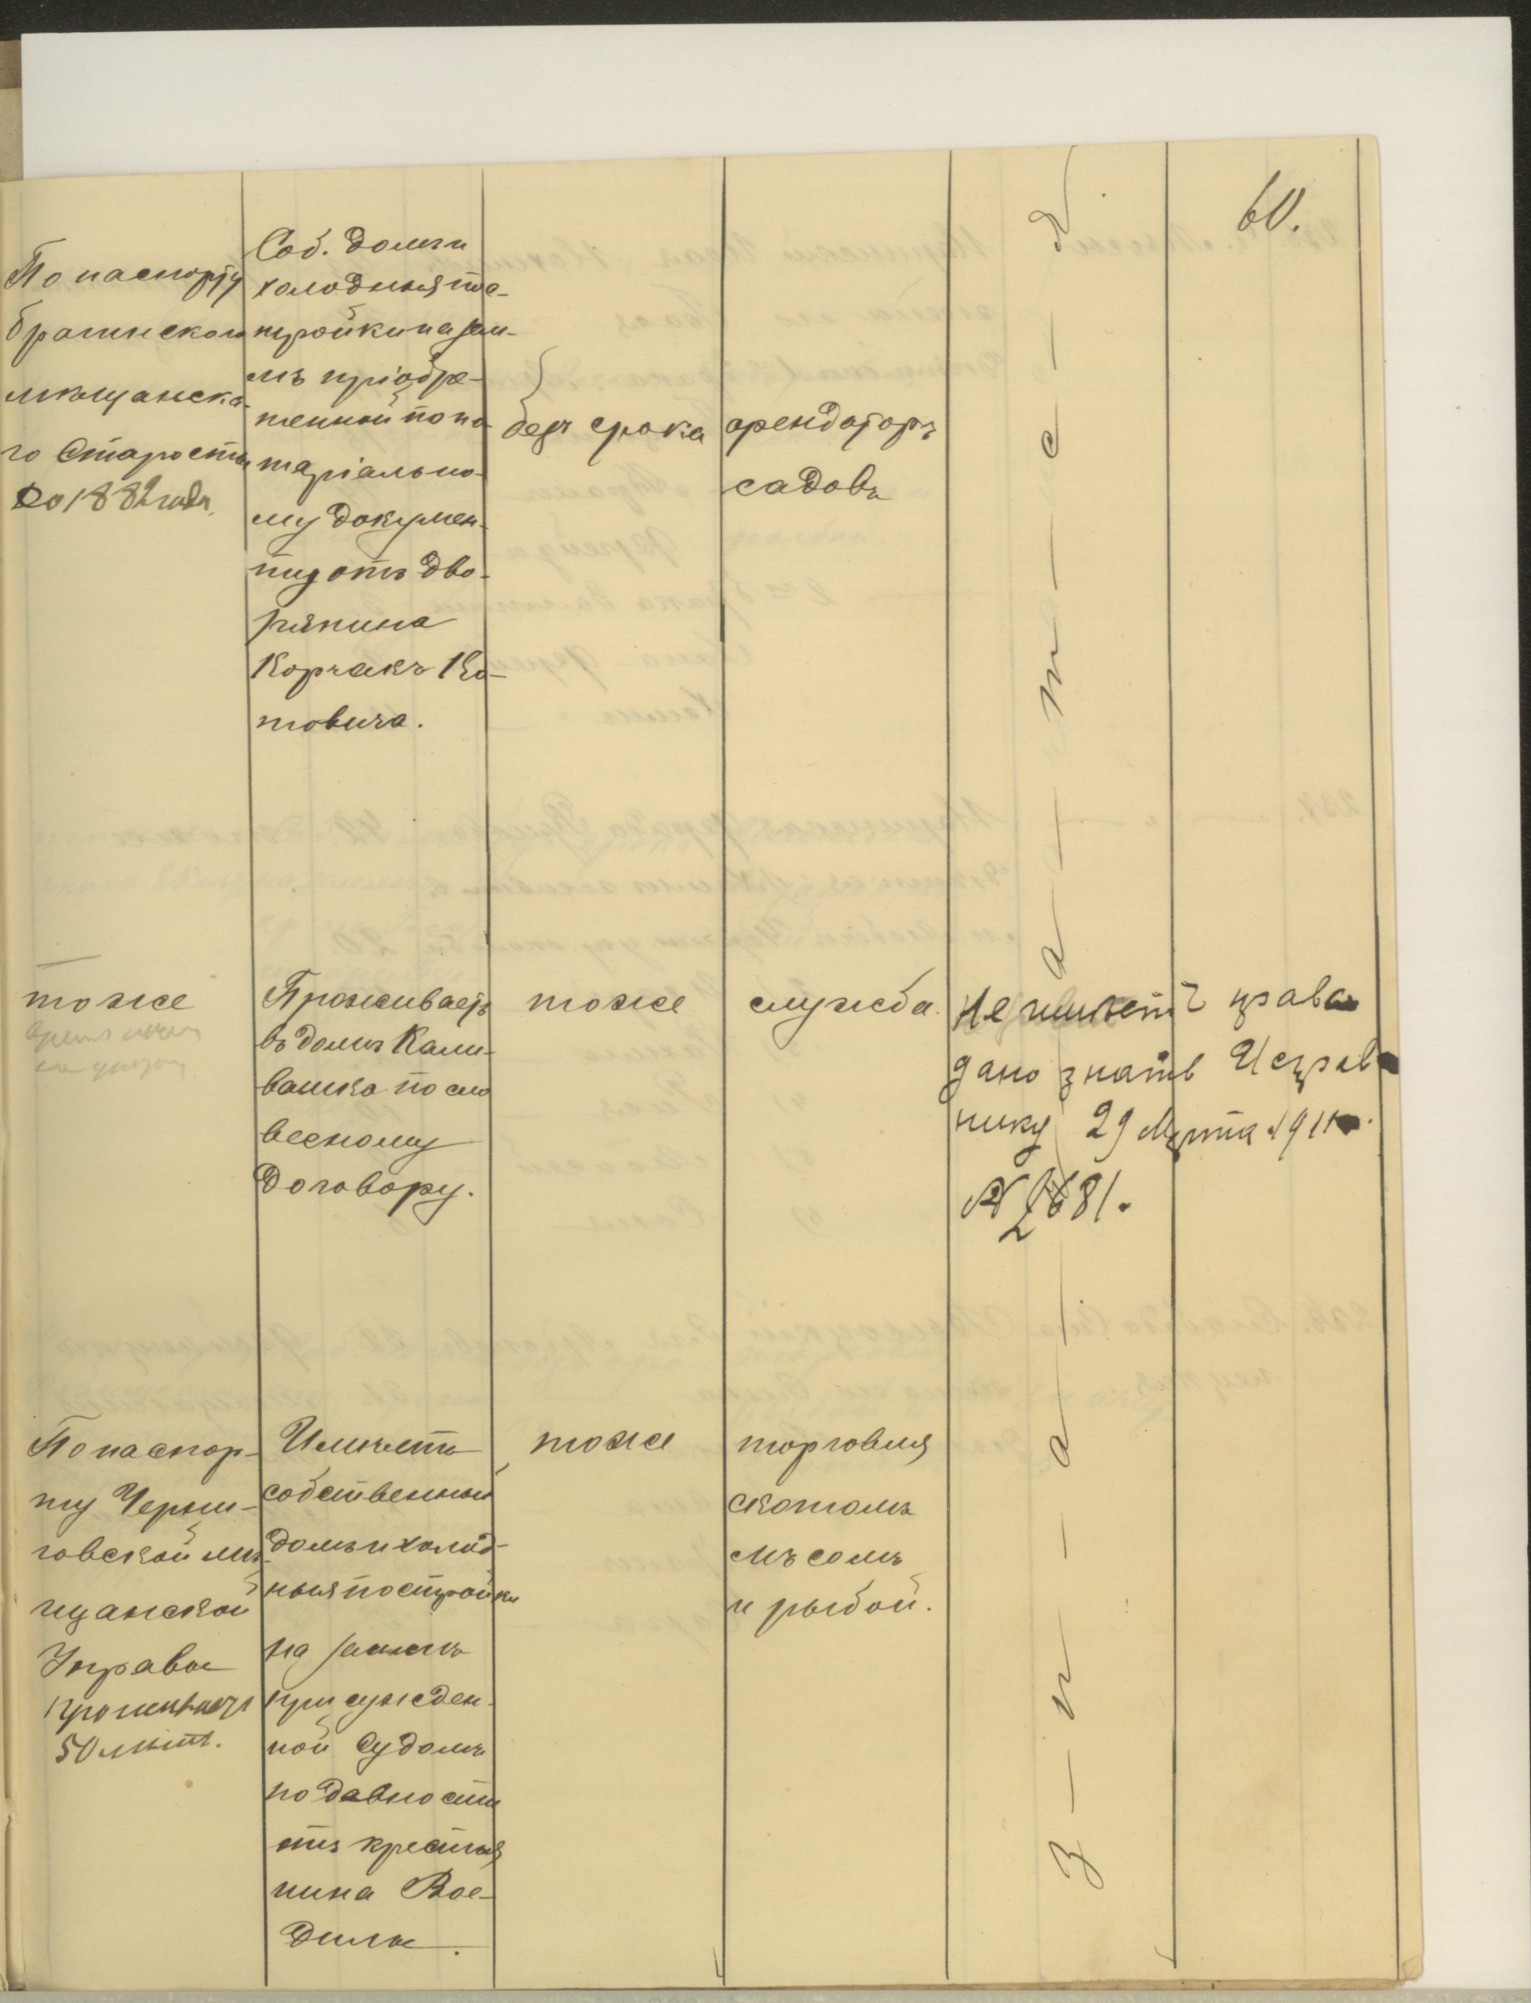 60.
По паспорту
брагинскаго
мѣщанска-
го Старосты
до 1882 года.
Соб. домъ и
холодныя по-
стройки на зем-
лѣ пріобрѣ-
тенной по но-
таріально-
му докумен-
ту отъ дво-
рянина
Корчакъ Ко-
товича.
безъ срока
арендаторъ
садовъ
тоже
Проживаетъ
въ домѣ Кали-
вашка по сло
весному
договору.
тоже
служба.
Не имѣетъ права
дано знать Исправ-
нику 29 Марта 1911
№ 2681.
По паспор-
ту Черни-
говской мѣ-
щанской
Управы
проживаетъ
50 лѣтъ.
Имѣетъ
собственный
домъ и холод-
ныя постройки
на землѣ
присужден-
ной Судомъ
по давности
отъ крестья
нина Вое-
дилы.
тоже
торговля
скотомъ
мѣсомъ
и рыбой.
З-н-а-а-т-с-я.